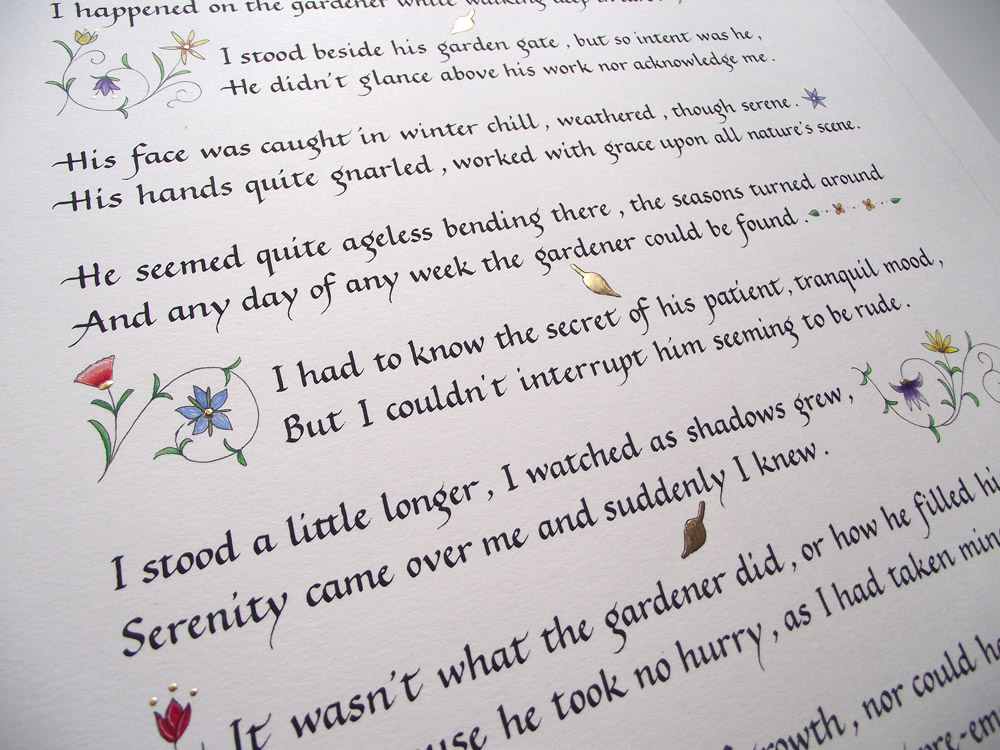 I happened on the gardener while walking
I stood beside his garden gate, but so intent was he,
He didn't glance above his work nor acknowledge me.
His face was caught in winter chill, weathered, though serene.
His hands quite gnarled, worked with grace upon all nature's scene.
He seemed quite ageless bending there, the seasons turned around
And any day of any week the gardener could be found.
I had to know the secret of his patient, tranquil mood,
But I couldn't interrupt him seeming to be rude.
I stood a little longer, I watched as shadows grew,
Serenity came over me and suddenly I knew.
It wasn't what the gardener did, or how he filled hi
use he took no hurry, as I had taken mine
rowth, nor could he
re-em